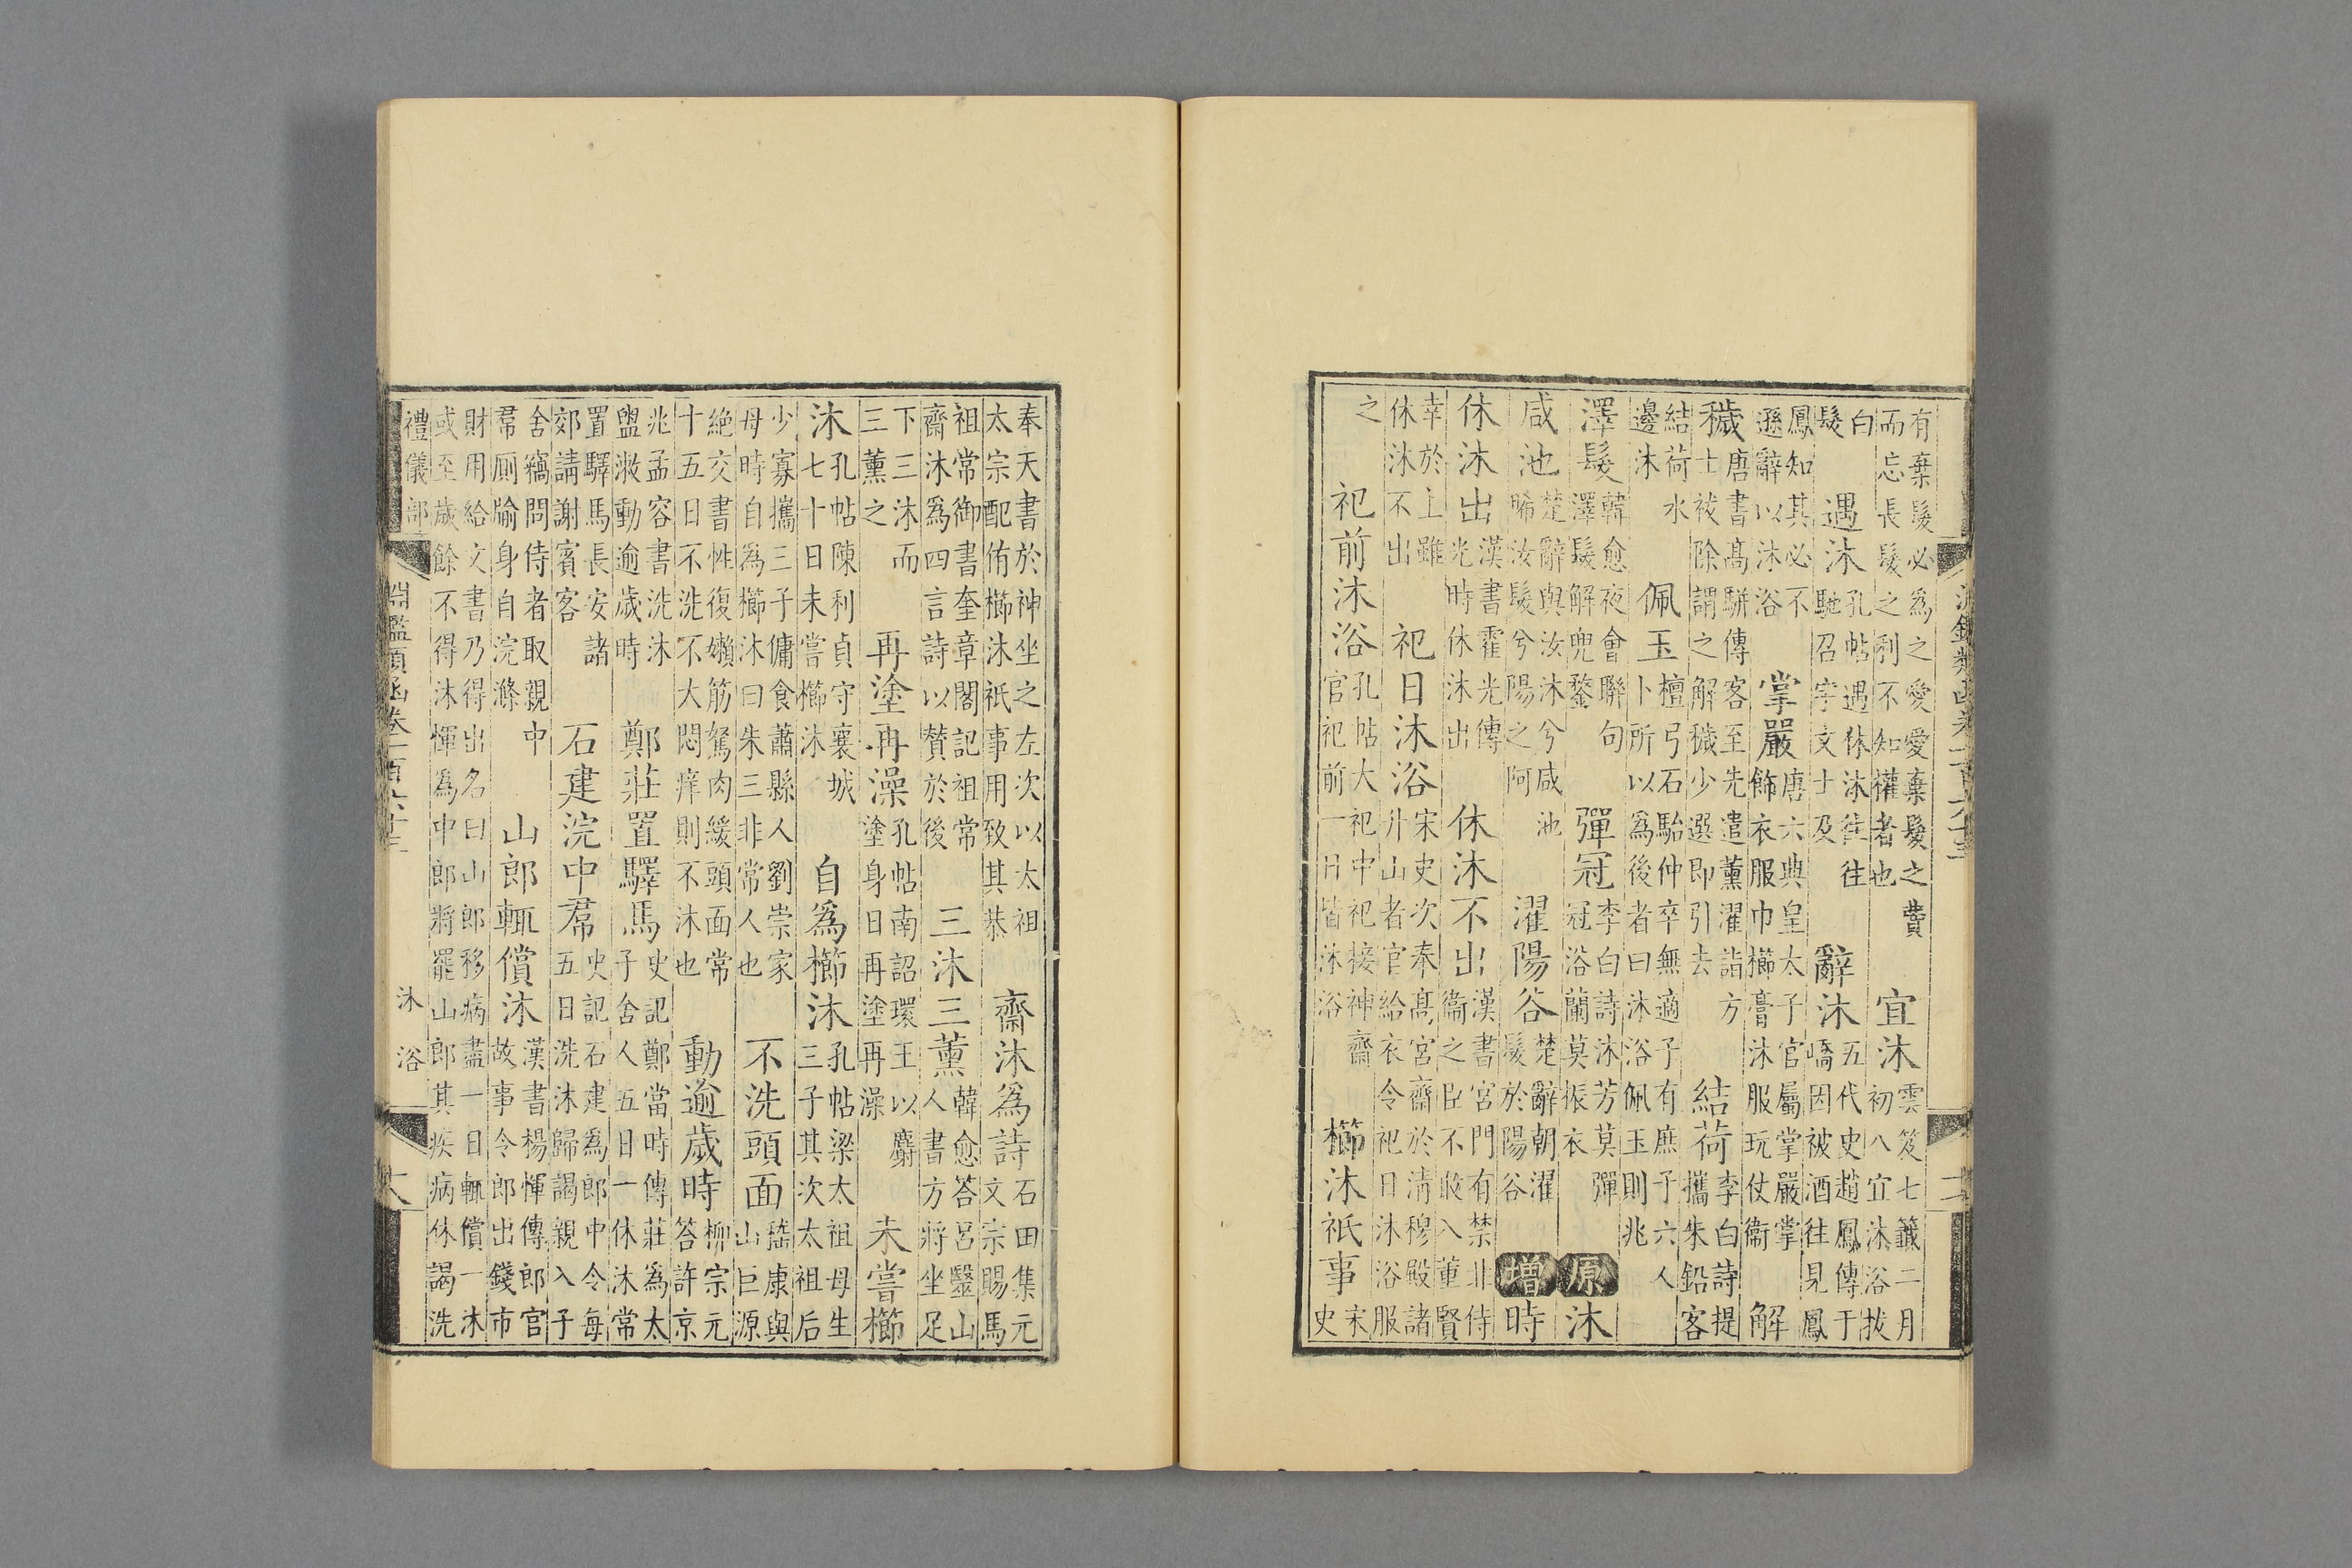 有棄髮必為之愛愛棄髮之費而忘長髮之利不知權者也 宜沐 雲笈七籤二月初八宜沐浴拔
白髮 遇沐 孔帖遇休沐往往馳召宇文士及 辭沐 五代史趙鳳傳于嶠因被酒往見鳳
鳳知其必不遜辭以沐浴 掌嚴 唐六典皇太子官屬掌嚴掌飾衣服巾櫛膏沐服玩仗衞 解
穢 唐書高駢傳客至先遣薰濯詣方士祓除謂之解穢少選即引去 結荷 李白詩提攜朱鉛客
結荷水邊沐 佩玉 檀弓石駘仲卒無適子有庶子六人卜所以為後者曰沐浴佩玉則兆
澤髮 韓愈夜會聯句澤髮解兜鍪 彈冠 李白詩沐芳莫彈冠浴蘭莫振衣 原 沐
咸池 楚辭與汝沐兮咸池晞汝髮兮陽之阿 濯陽谷 楚辭朝濯髮於陽谷 增 時
休沐出 漢書霍光傳光時休沐出 休沐不出 漢書宮門有禁非侍衞之臣不敢入董賢
幸於上雖休沐不出 祀日沐浴 宋史次奉高宮齋於清穆殿諸升山者官給衣令祀日沐浴服
之 祀前沐浴 孔帖大祀中祀接神齋官祀前一日皆沐浴 櫛沐祇事 宋史
奉天書於神坐之左次以太祖太宗配侑櫛沐祇事用致其恭 齋沐為詩 石田集元文宗賜馬
祖常御書奎章閣記祖常齋沐為四言詩以贊於後 三沐三薰 韓愈答呂毉山人書方將坐足
下三沐而三薰之 再塗再澡 孔帖南詔環王以麝塗身日再塗再澡 未嘗櫛
沐 孔帖陳利貞守襄城七十日未嘗櫛沐 自為櫛沐 孔帖梁太祖母生三子其次太祖后
少寡攜三子傭食蕭縣人劉崇家母時自為櫛沐曰朱三非常人也 不洗頭面 嵇康與山巨源
絕交書性復嬾筋駑肉緩頭面常十五日不洗不大悶痒則不沐也 動逾歲時 柳宗元答許京
兆孟容書洗沐盥漱動逾歲時 鄭莊置驛馬 史記鄭當時傳莊為太子舍人五日一休沐常
置驛馬長安諸郊請謝賓客 石建浣中帬 史記石建為郎中令每五日洗沐歸謁親入子
舍竊問侍者取親中帬厠牏身自浣滌 山郎輒償沐 漢書楊惲傳郎官故事令郎出錢市
財用給文書乃得出名曰山郎移病盡一日輒償一沐或至歲餘不得沐惲為中郎將罷山郎其疾病休謁洗
禮儀部 沐浴